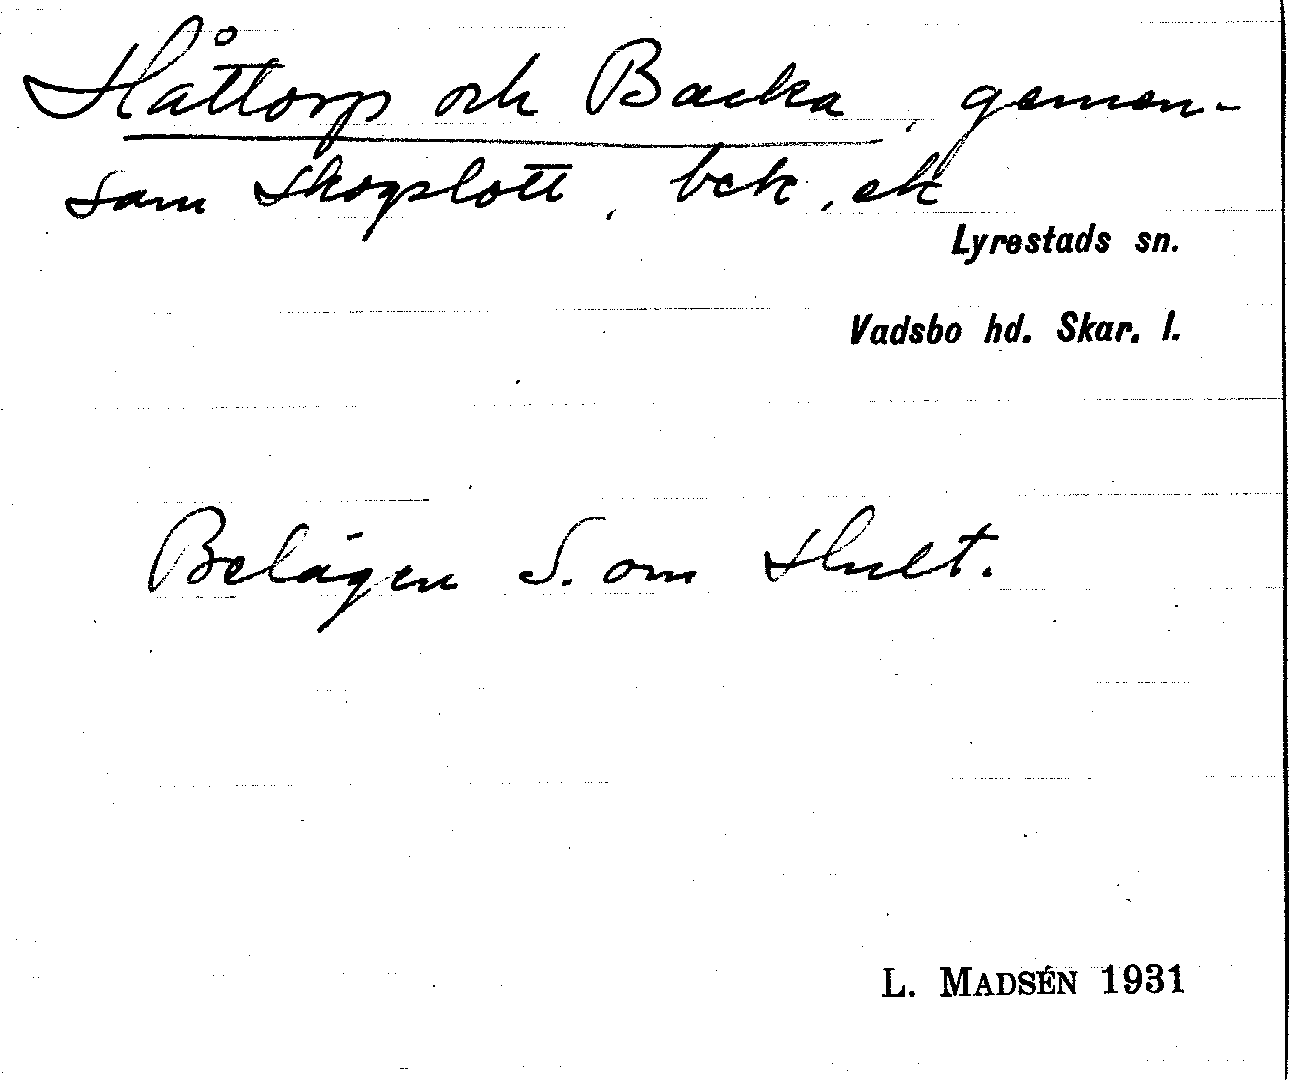 Håttorp och Backa, gemen-
sam skogslott, bek, ek
Lyrestads sn.
Vadsbo hd. Skar. l.
Belägen S. om Hult.
L. MADSÉN 1931